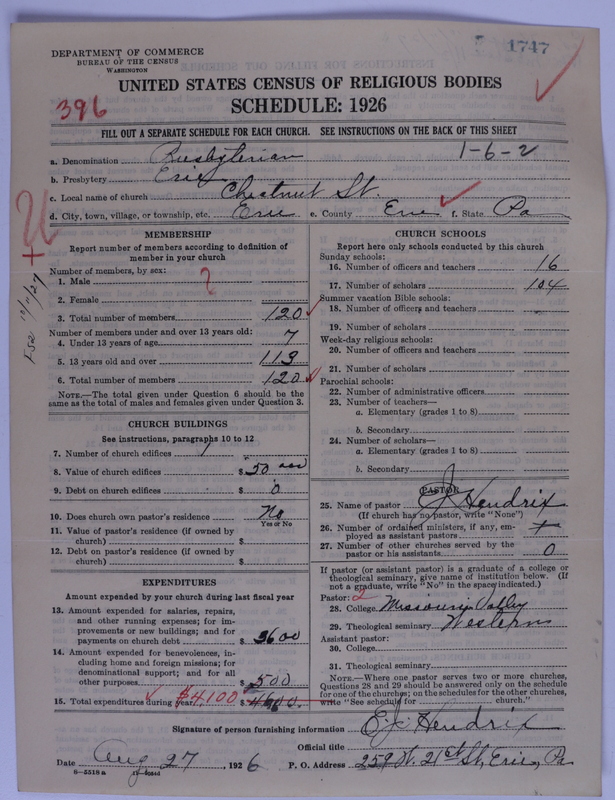 1747
DEPARTMENT OF COMMERCE
BUREAU OF THE CENSUS
WASHINGTON
UNITED STATES CENSUS OF RELIGIOUS BODIES
396
SCHEDULE: 1926
FILL OUT A SEPARATE SCHEDULE FOR EACH CHURCH. SEE INSTRUCTIONS ON THE BACK OF THIS SHEET
a. Denomination Presbyterian 1-6-2
b. Presbytery Erie
c. Local name of church Chestnut St.
d. City, town, village, or township, etc. Erie e. County Erie f. State Pa
MEMBERSHIP
Report number of members according to definition of
member in your church
Number of members, by sex:
1. Male
2. Female
3. Total number of members 120
Number of members under and over 13 years old:
4. Under 13 years of age 7
5. 13 years old and over 113
6. Total number of members 120
NOTE.—The total given under Question 6 should be
same as the total of males and females given under Question 3.
CHURCH BUILDINGS
See instructions, paragraphs 10 to 12
7. Number of church edifices 1
8. Value of church edifices $50 000
9. Debt on church edifices $ 0
10. Does church own pastor's residence No
Yes or No
11. Value of pastor's residence (if owned by
church) $
12. Debt on pastor's residence (if owned by
church) $
EXPENDITURES
Amount expended by your church during last fiscal year
13. Amount expended for salaries, repairs,
and other running expenses; for im-
provements or new buildings; and for
payments on church debt $3600
14. Amount expended for benevolences, in-
cluding home and foreign missions; for
denominational support; and for all
other purposes $500
15. Total expenditures during year $4,100
CHURCH SCHOOLS
Report here only schools conducted by this church
Sunday schools:
16. Number of officers and teachers 16
17. Number of scholars 104
Summer vacation Bible schools:
18. Number of officers and teachers
19. Number of scholars
Week-day religious schools:
20. Number of officers and teachers
21. Number of scholars
Parochial schools:
22. Number of administrative officers
23. Number of teachers—
a. Elementary (grades 1 to 8)
b. Secondary
24. Number of scholars—
a. Elementary (grades 1 to 8)
b. Secondary
PASTOR
25. Name of pastor E J Hendrix
(If church has no pastor, write "None")
26. Number of ordained ministers, if any, em-
ployed as assistant pastors
27. Number of other churches served by the
pastor or his assistants 0
If pastor (or assistant pastor) is a graduate of a college or
theological seminary, give name of institution below. (If
not a graduate, write "No" in the space indicated.)
Pastor: 2
28. College Missouri Valley
29. Theological seminary Western
Assistant pastor:
30. College
31. Theological seminary
NOTE.—Where one pastor serves two or more churches,
Questions 28 and 29 should be answered only on the schedule
for one of the churches; on the schedules for the other churches,
write "See schedule for church."
Signature of person furnishing information E. J. Hendrix
Official title
Date Aug 27, 1926 P. O. Address 259 W. 21st St, Erie, Pa
8-5518a